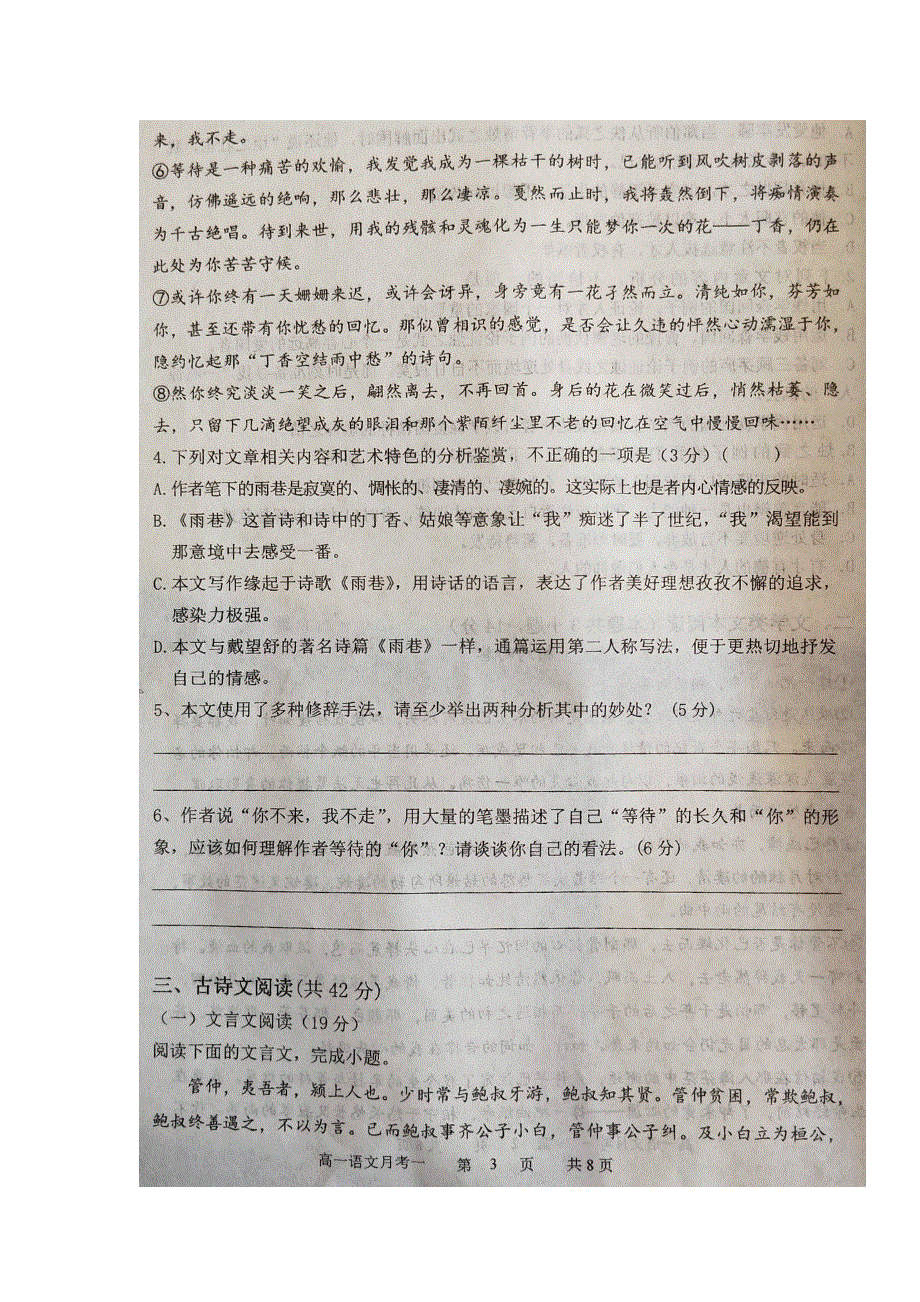 来，我不走。
⑥等待是一种痛苦的欢愉，我发觉我成为一棵枯干的树时，已能听到风吹树皮剥落的声
音，仿佛遥远的绝响，那么悲壮，那么凄凉。戛然而止时，我将轰然倒下，将痴情演奏
为千古绝唱。待到来世，用我的残骸和灵魂化为一生只能梦你一次的花——丁香，仍在
此处为你苦苦守候。
⑦或许你终有一天姗姗来迟，或许会讶异，身旁竟有一花孑然而立。清纯如你，芬芳如
你，甚至还带有你忧愁的回忆。那似曾相识的感觉，是否会让久违的怦然心动濡湿于你，
隐约忆起那“丁香空结雨中愁”的诗句。
⑧然你终究淡淡一笑之后，翩然离去，不再回首。身后的花在微笑过后，悄然枯萎、隐
去，只留下几滴绝望成灰的眼泪和那个紫陌纤尘里不老的回忆在空气中慢慢回味……
4.下列对文章相关内容和艺术特色的分析鉴赏，不正确的一项是（3分）(　　)
A.作者笔下的雨巷是寂寞的、惆怅的、凄清的、凄婉的。这实际上也是者内心情感的反映。
B.《雨巷》这首诗和诗中的丁香、姑娘等意象让“我”痴迷了半了世纪，“我”渴望能到
那意境中去感受一番。
C.本文写作缘起于诗歌《雨巷》，用诗话的语言，表达了作者美好理想孜孜不懈的追求，
感染力极强。
D.本文与戴望舒的著名诗篇《雨巷》一样，通篇运用第二人称写法，便于更热切地抒发
自己的情感。
5、本文使用了多种修辞手法，请至少举出两种分析其中的妙处？（5分）
6、作者说“你不来，我不走”，用大量的笔墨描述了自己“等待”的长久和“你”的形
象，应该如何理解作者等待的“你”？请谈谈你自己的看法。(6分)
三、古诗文阅读(共42分)
（一）文言文阅读(19分)
阅读下面的文言文，完成小题。
管仲，夷吾者，颍上人也。少时常与鲍叔牙游，鲍叔知其贤。管仲贫困，常欺鲍叔，
鲍叔终善遇之，不以为言。已而鲍叔事齐公子小白，管仲事公子纠。及小白立为桓公，
高一语文月考一　第　3　页　共8页